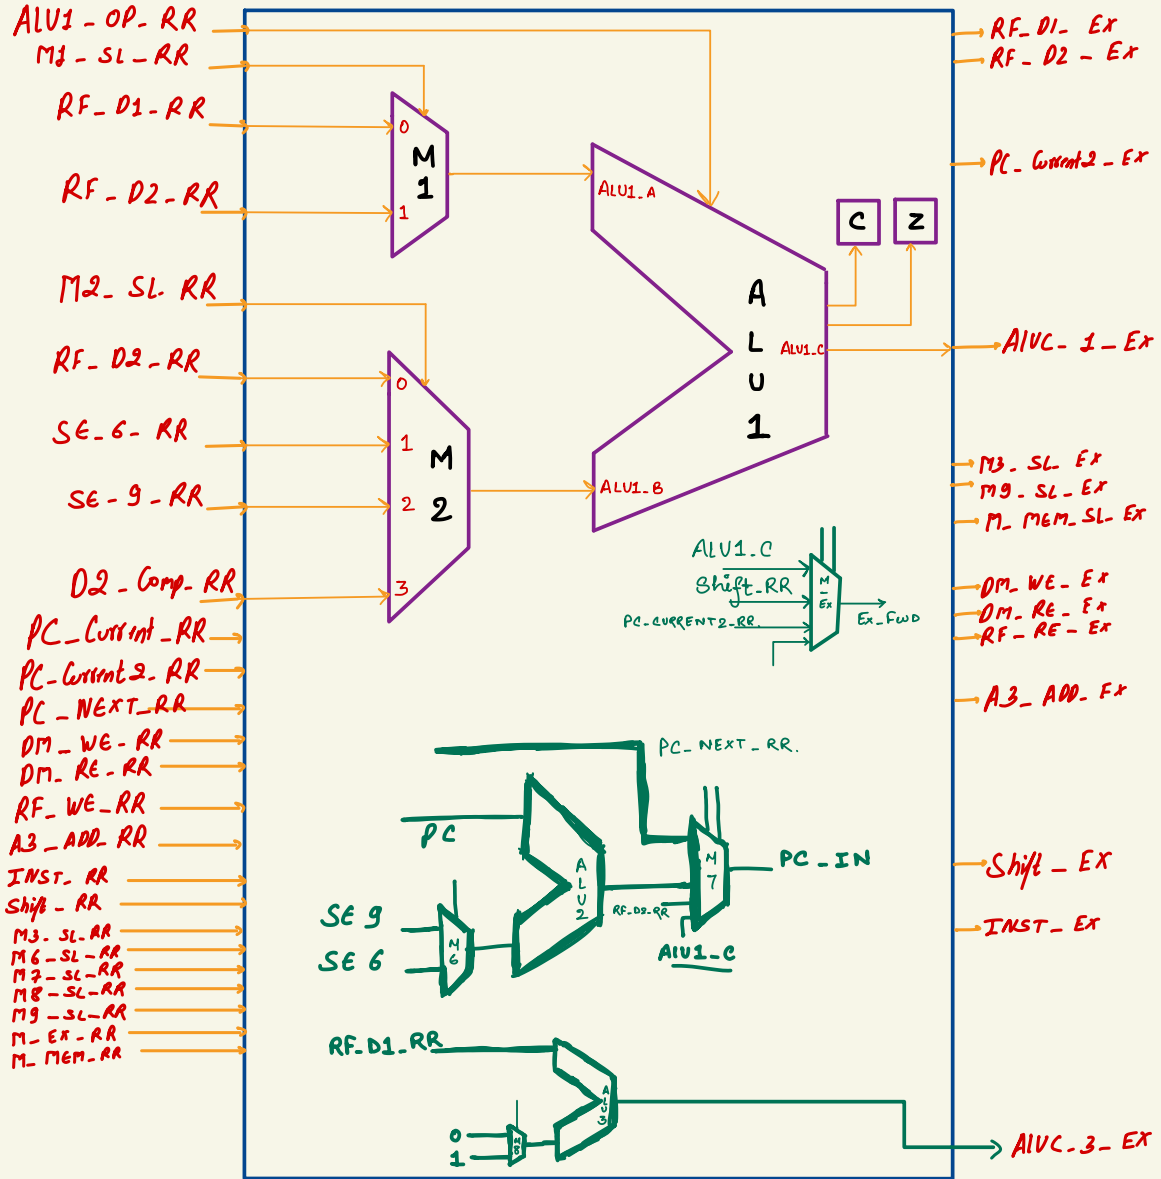 ALU1_OP_RR
M1_SL_RR
RF_D1_RR
RF_D2_RR
M2_SL_RR
RF_D2_RR
SE_6_RR
SE_9_RR
D2_Comp_RR
PC_Current_RR
PC_Current2_RR
PC_NEXT_RR
DM_WE_RR
DM_RE_RR
RF_WE_RR
A3_ADD_RR
INST_RR
Shift_RR
M3_SL_RR
M6_SL_RR
M7_SL_RR
M8_SL_RR
M9_SL_RR
M_EX_RR
M_MEM_RR
0
M
1
1
0
1
M
2
2
3
ALU1_A
A
L
U
1
ALU1_C
ALU1_B
C
Z
ALU1_C
Shift_RR
PC_CURRENT2_RR.
M
Ex
Ex_FWD
PC_NEXT_RR.
PC
A
L
U
2
SE 9
SE 6
M
6
M
7
RF_D2_RR
AlU1_C
PC_IN
RF_D1_RR
A
L
U
3
0
1
M
8
RF_D1_Ex
RF_D2_Ex
PC_Current2_Ex
AlUC_1_Ex
M3_SL_Ex
M9_SL_Ex
M_MEM_SL_Ex
DM_WE_Ex
DM_RE_Ex
RF_RE_Ex
A3_ADD_Ex
Shift_EX
INST_Ex
AlUC_3_EX